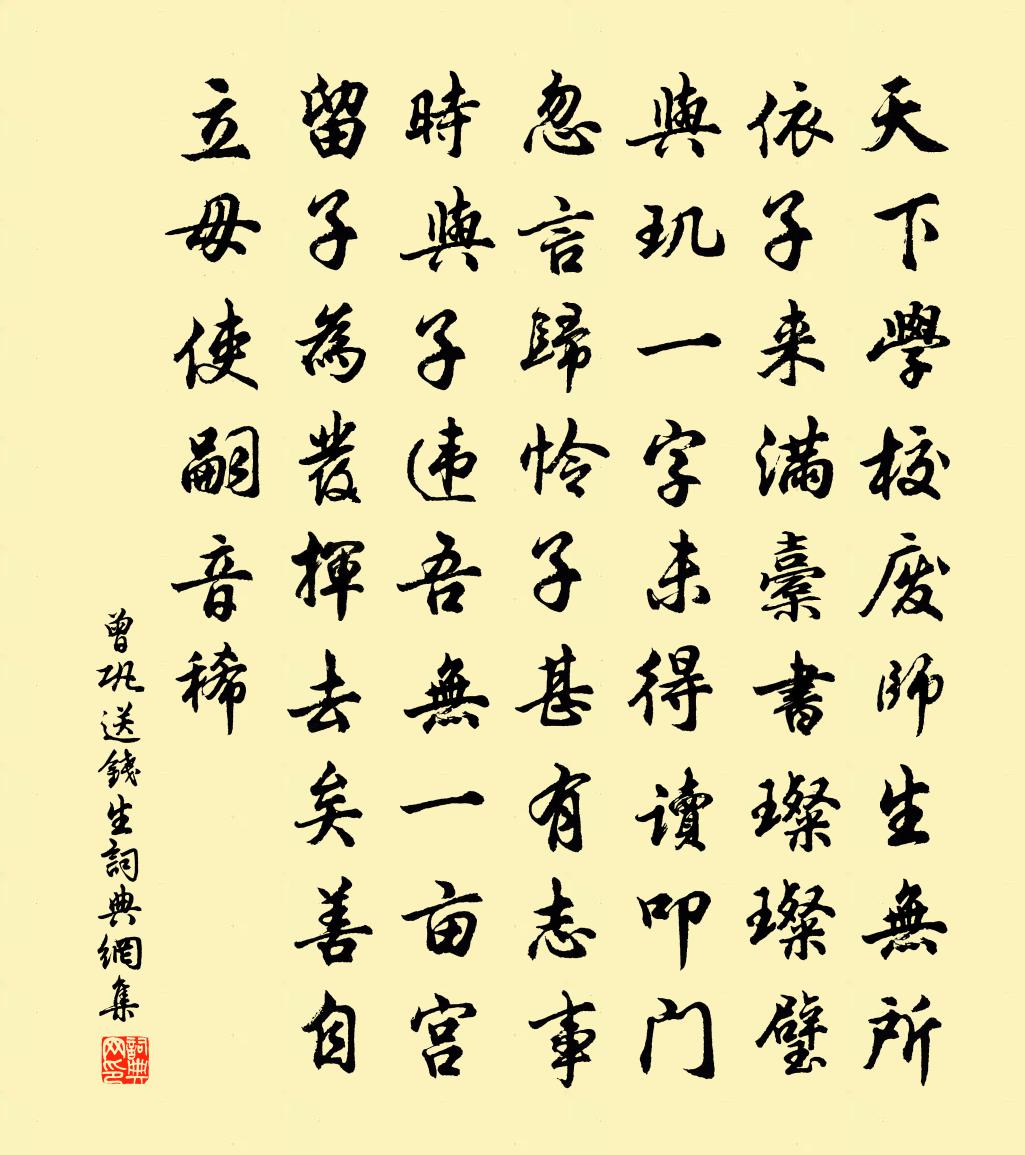 天下學校废師生無所
依子来滿槖書璨璨璧
與玑一字未得讀叩门
忽言歸怜子甚有志事
時與子违吾無一亩宫
留子為發揮去矣善自
立毋使嗣音稀
曾巩送錢生詞典網集
詞典网印